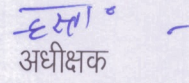 हस्ता॰
अधीक्षक